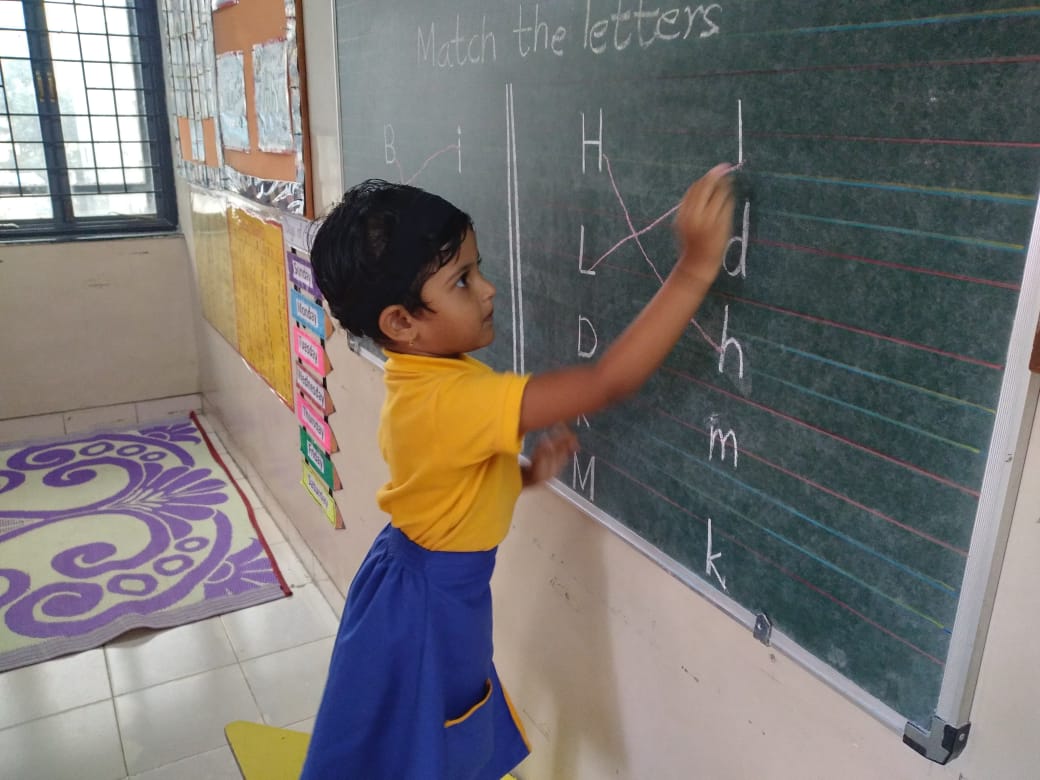 Match the letters
B i
H l
L d
D h
K m
M k
Sunday
Monday
Tuesday
Wednesday
Thursday
Friday
Saturday